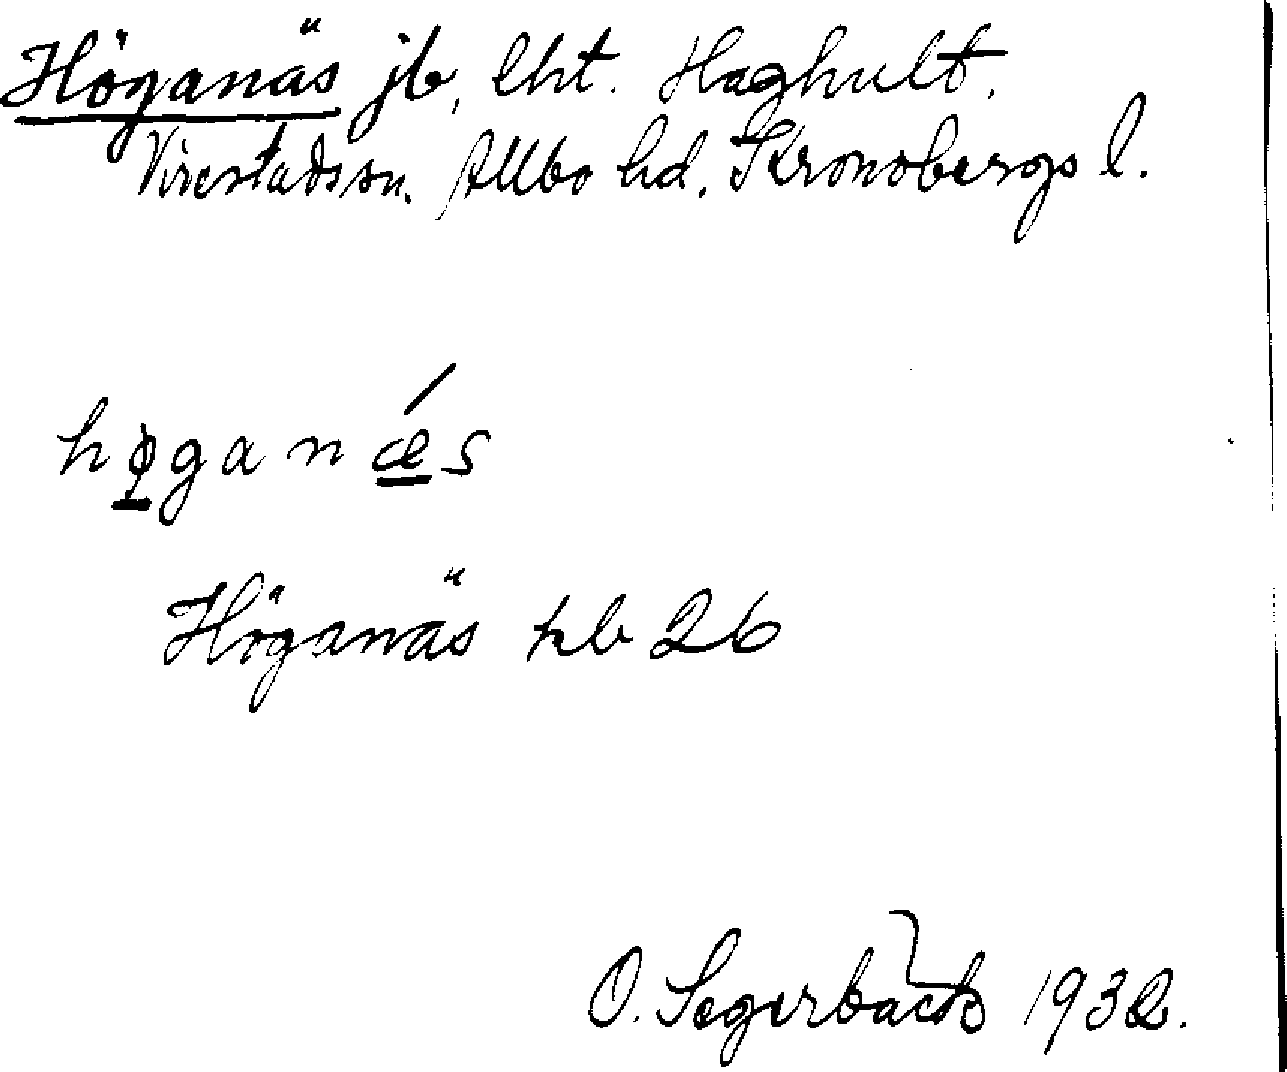 Höganäs jb, lht. Haghult,
Virestads sn. Allbo hd. Kronobergs l.
hø̨ganǽs
Höganäs hb 26
O. Segerbäck 1932.